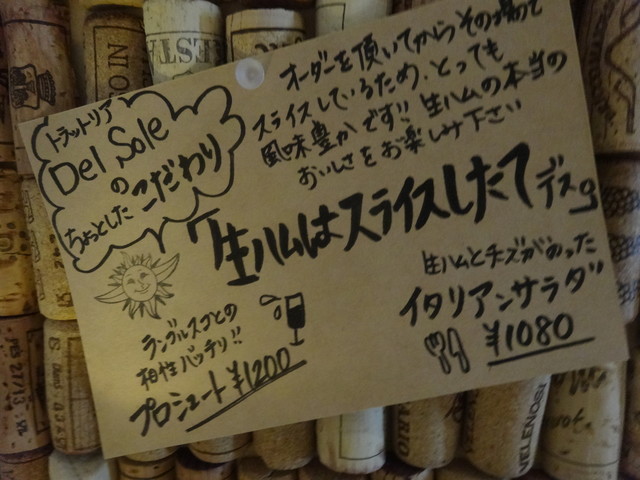 トラットリア
Del Sole
の
ちょっとした こだわり
オーダーを頂いてからその場で
スライスしているため、とっても
風味豊かです!! 生ハムの本当の
おいしさをお楽しみ下さい
「生ハムはスライスしたてデス。」
ランブルスコとの
相性バッチリ!!
プロシュート ¥1200
生ハムとチーズがのった
イタリアンサラダ
¥1080
VELENOSI